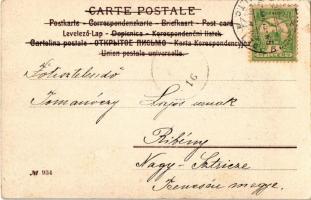 CARTE POSTALE
Postkarte - Correspondenzkarte - Briefkaart - Post card
Levelező-Lap - Dopisnice - Korespondenční lístek
Cartolina postale - ОТКРЫТОЕ ПИСЬМО - Karta Korespondencyjna
Union postale universelle.
16
Tomanóczy Lajos urnak
Ribény
Nagy-Sztricze
Trencsén megye.
№ 934